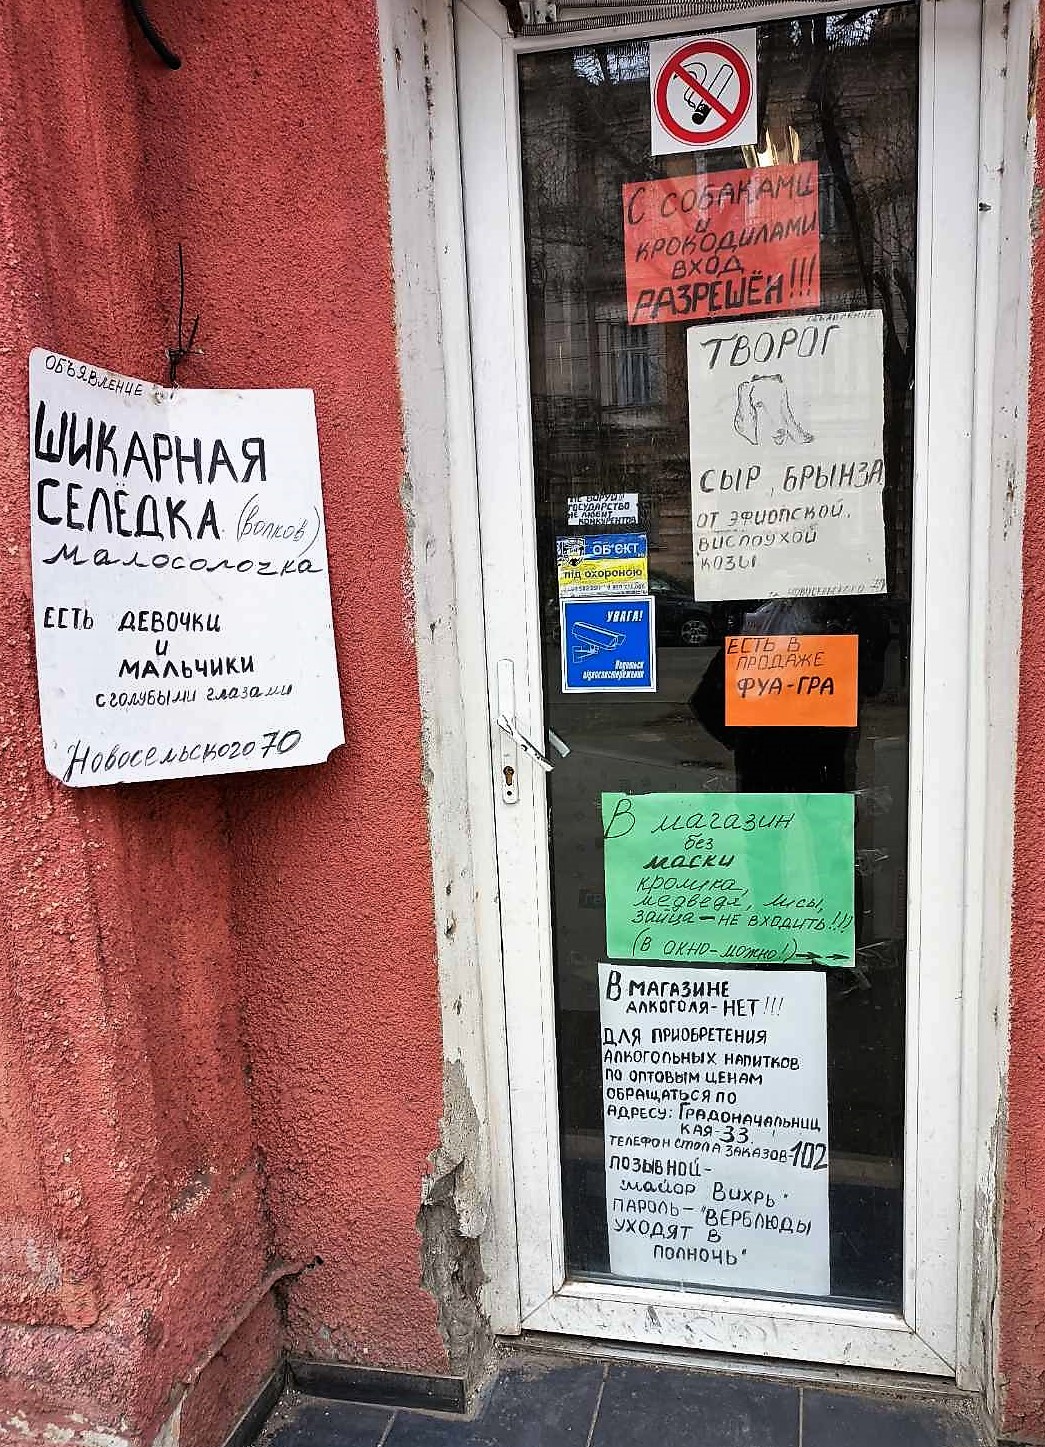 ОБЪЯВЛЕНИЕ
ШИКАРНАЯ
СЕЛЁДКА (волков)
малосолочка
ЕСТЬ ДЕВОЧКИ
И
МАЛЬЧИКИ
с голубыми глазами
Новосельского 70
С СОБАКАМИ
И
КРОКОДИЛАМИ
ВХОД
РАЗРЕШЁН!!!
ОБЪЯВЛЕНИЕ
ТВОРОГ
СЫР, БРЫНЗА
ОТ ЭФИОПСКОЙ,
ВИСЛОУХОЙ
КОЗЫ
НЕ ВОРУЙ!!!
ГОСУДАРСТВО
НЕ ЛЮБИТ
КОНКУРЕНТОВ
ОБ'ЄКТ
під охороною
УВАГА!
Ведеться
відеоспостереження
ЕСТЬ В
ПРОДАЖЕ
ФУА-ГРА
В магазин
без
маски
кролика,
медведя, лисы,
зайца - НЕ ВХОДИТЬ!!!)
(В ОКНО-МОЖНО!)→→
В МАГАЗИНЕ
АЛКОГОЛЯ-НЕТ!!!
ДЛЯ ПРИОБРЕТЕНИЯ
АЛКОГОЛЬНЫХ НАПИТКОВ
ПО ОПТОВЫМ ЦЕНАМ
ОБРАЩАТЬСЯ ПО
АДРЕСУ: ГРАДОНАЧАЛЬНИЦ
КАЯ-33.
ТЕЛЕФОН СТОЛА ЗАКАЗОВ-102
ПОЗЫВНОЙ-
"майор Вихрь"
ПАРОЛЬ-"ВЕРБЛЮДЫ
УХОДЯТ В
ПОЛНОЧЬ"